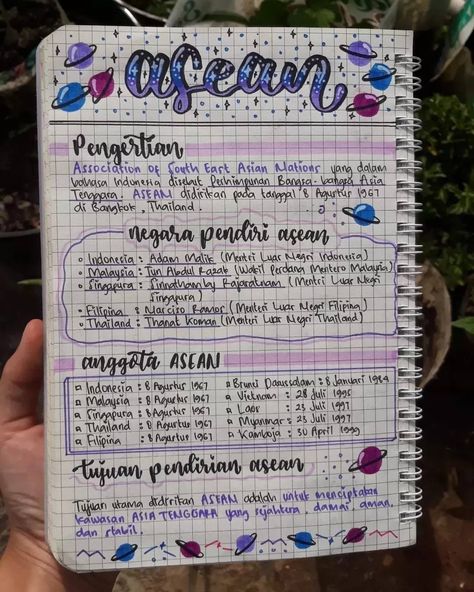 asean
Pengertian
Association of South East Asian Nations yang dalam
bahasa Indonesia disebut Perhimpunan Bangsa-bangsa Asia
Tenggara. ASEAN didirikan pada tanggal 8 Agustus 1967
di Bangkok, Thailand.
negara pendiri asean
Indonesia : Adam Malik (Mentri Luar Negri Indonesia)
Malaysia : Tun Abdul Razak (Wakil Perdang Mentero Malaysia)
Singapura : Sinnathamby Rajaratnam (Mentri Luar Negri
Singapura)
Filipina : Narciso Ramos (Menteri Luar Negri Filipina)
Thailand : Thanat Koman (Menteri Luar Negri Thailand)
anggota ASEAN
Indonesia : 8 Agustus 1967
Malaysia : 8 Agustus 1967
Singapura : 8 Agustus 1967
Thailand : 8 Agustus 1967
Filipina : 8 Agustus 1967
Brunei Darussalam : 8 Januari 1984
Vietnam : 28 Juli 1995
Laos : 23 Juli 1997
Myanmar : 23 Juli 1997
Kamboja : 30 April 1999
tujuan pendirian asean
Tujuan utama didirikan ASEAN adalah untuk menciptakan
kawasan ASIA TENGGARA yang sejahtera, damai, aman,
dan stabil.